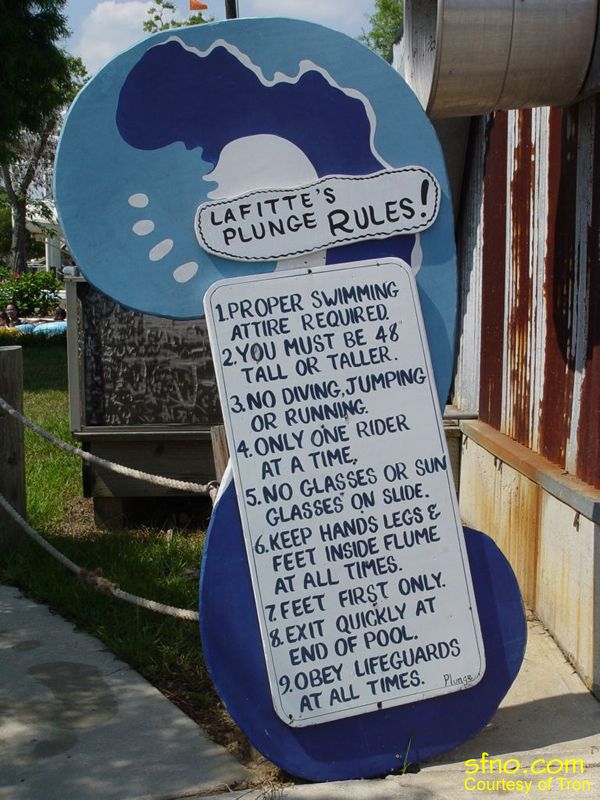 LAFITTE'S
PLUNGE RULES!
1. PROPER SWIMMING
ATTIRE REQUIRED.
2. YOU MUST BE 48"
TALL OR TALLER.
3. NO DIVING, JUMPING
OR RUNNING.
4. ONLY ONE RIDER
AT A TIME,
5. NO GLASSES OR SUN
GLASSES ON SLIDE.
6. KEEP HANDS LEGS &
FEET INSIDE FLUME
AT ALL TIMES.
7. FEET FIRST ONLY.
8. EXIT QUICKLY AT
END OF POOL.
9. OBEY LIFEGUARDS
AT ALL TIMES.
Plunge
sfno.com
Courtesy of Tron